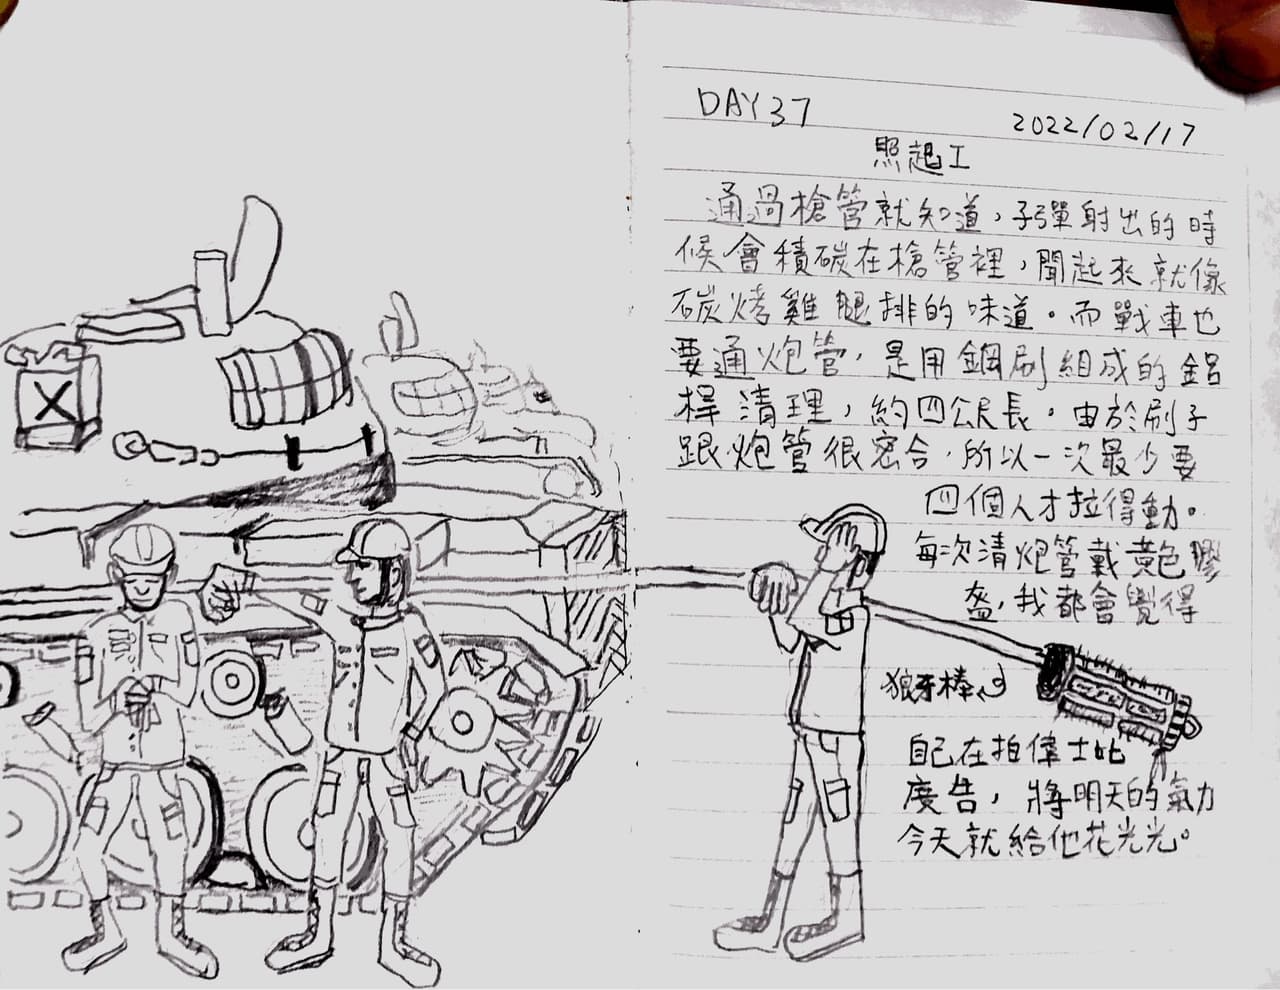 DAY 37
2022/02/17
照起工
通過槍管就知道，子彈射出的時
候會積碳在槍管裡，聞起來就像
碳烤雞腿排的味道。而戰車也
要通炮管，是用鋼刷組成的鋁
桿清理，約四公尺長。由於刷子
跟炮管很密合，所以一次最少要
四個人才拉得動。
每次清炮管戴黃色膠
盔，我都會覺得
狼牙棒
自己在拍偉士比
廣告，將明天的氣力
今天就給他花光光。
X